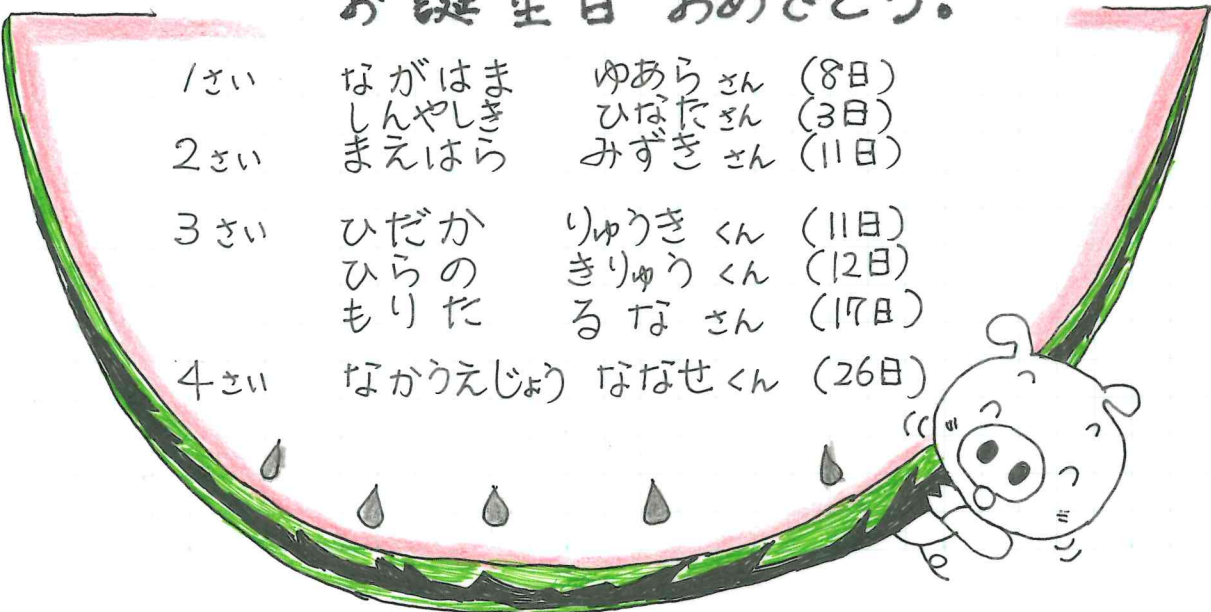 お誕生日 おめでとう。
1さい ながはま ゆあら さん (8日)
しんやしき ひなた さん (3日)
2さい まえはら みずき さん (11日)
3さい ひだか りゅうき くん (11日)
ひらの きりゅう くん (12日)
もりた るな さん (17日)
4さい なかうえじょう ななせ くん (26日)